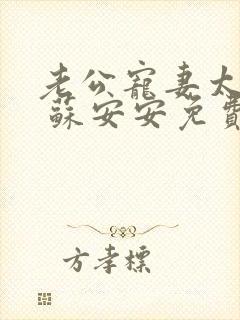 老公寵妻太
蘇安安免費
方孝標